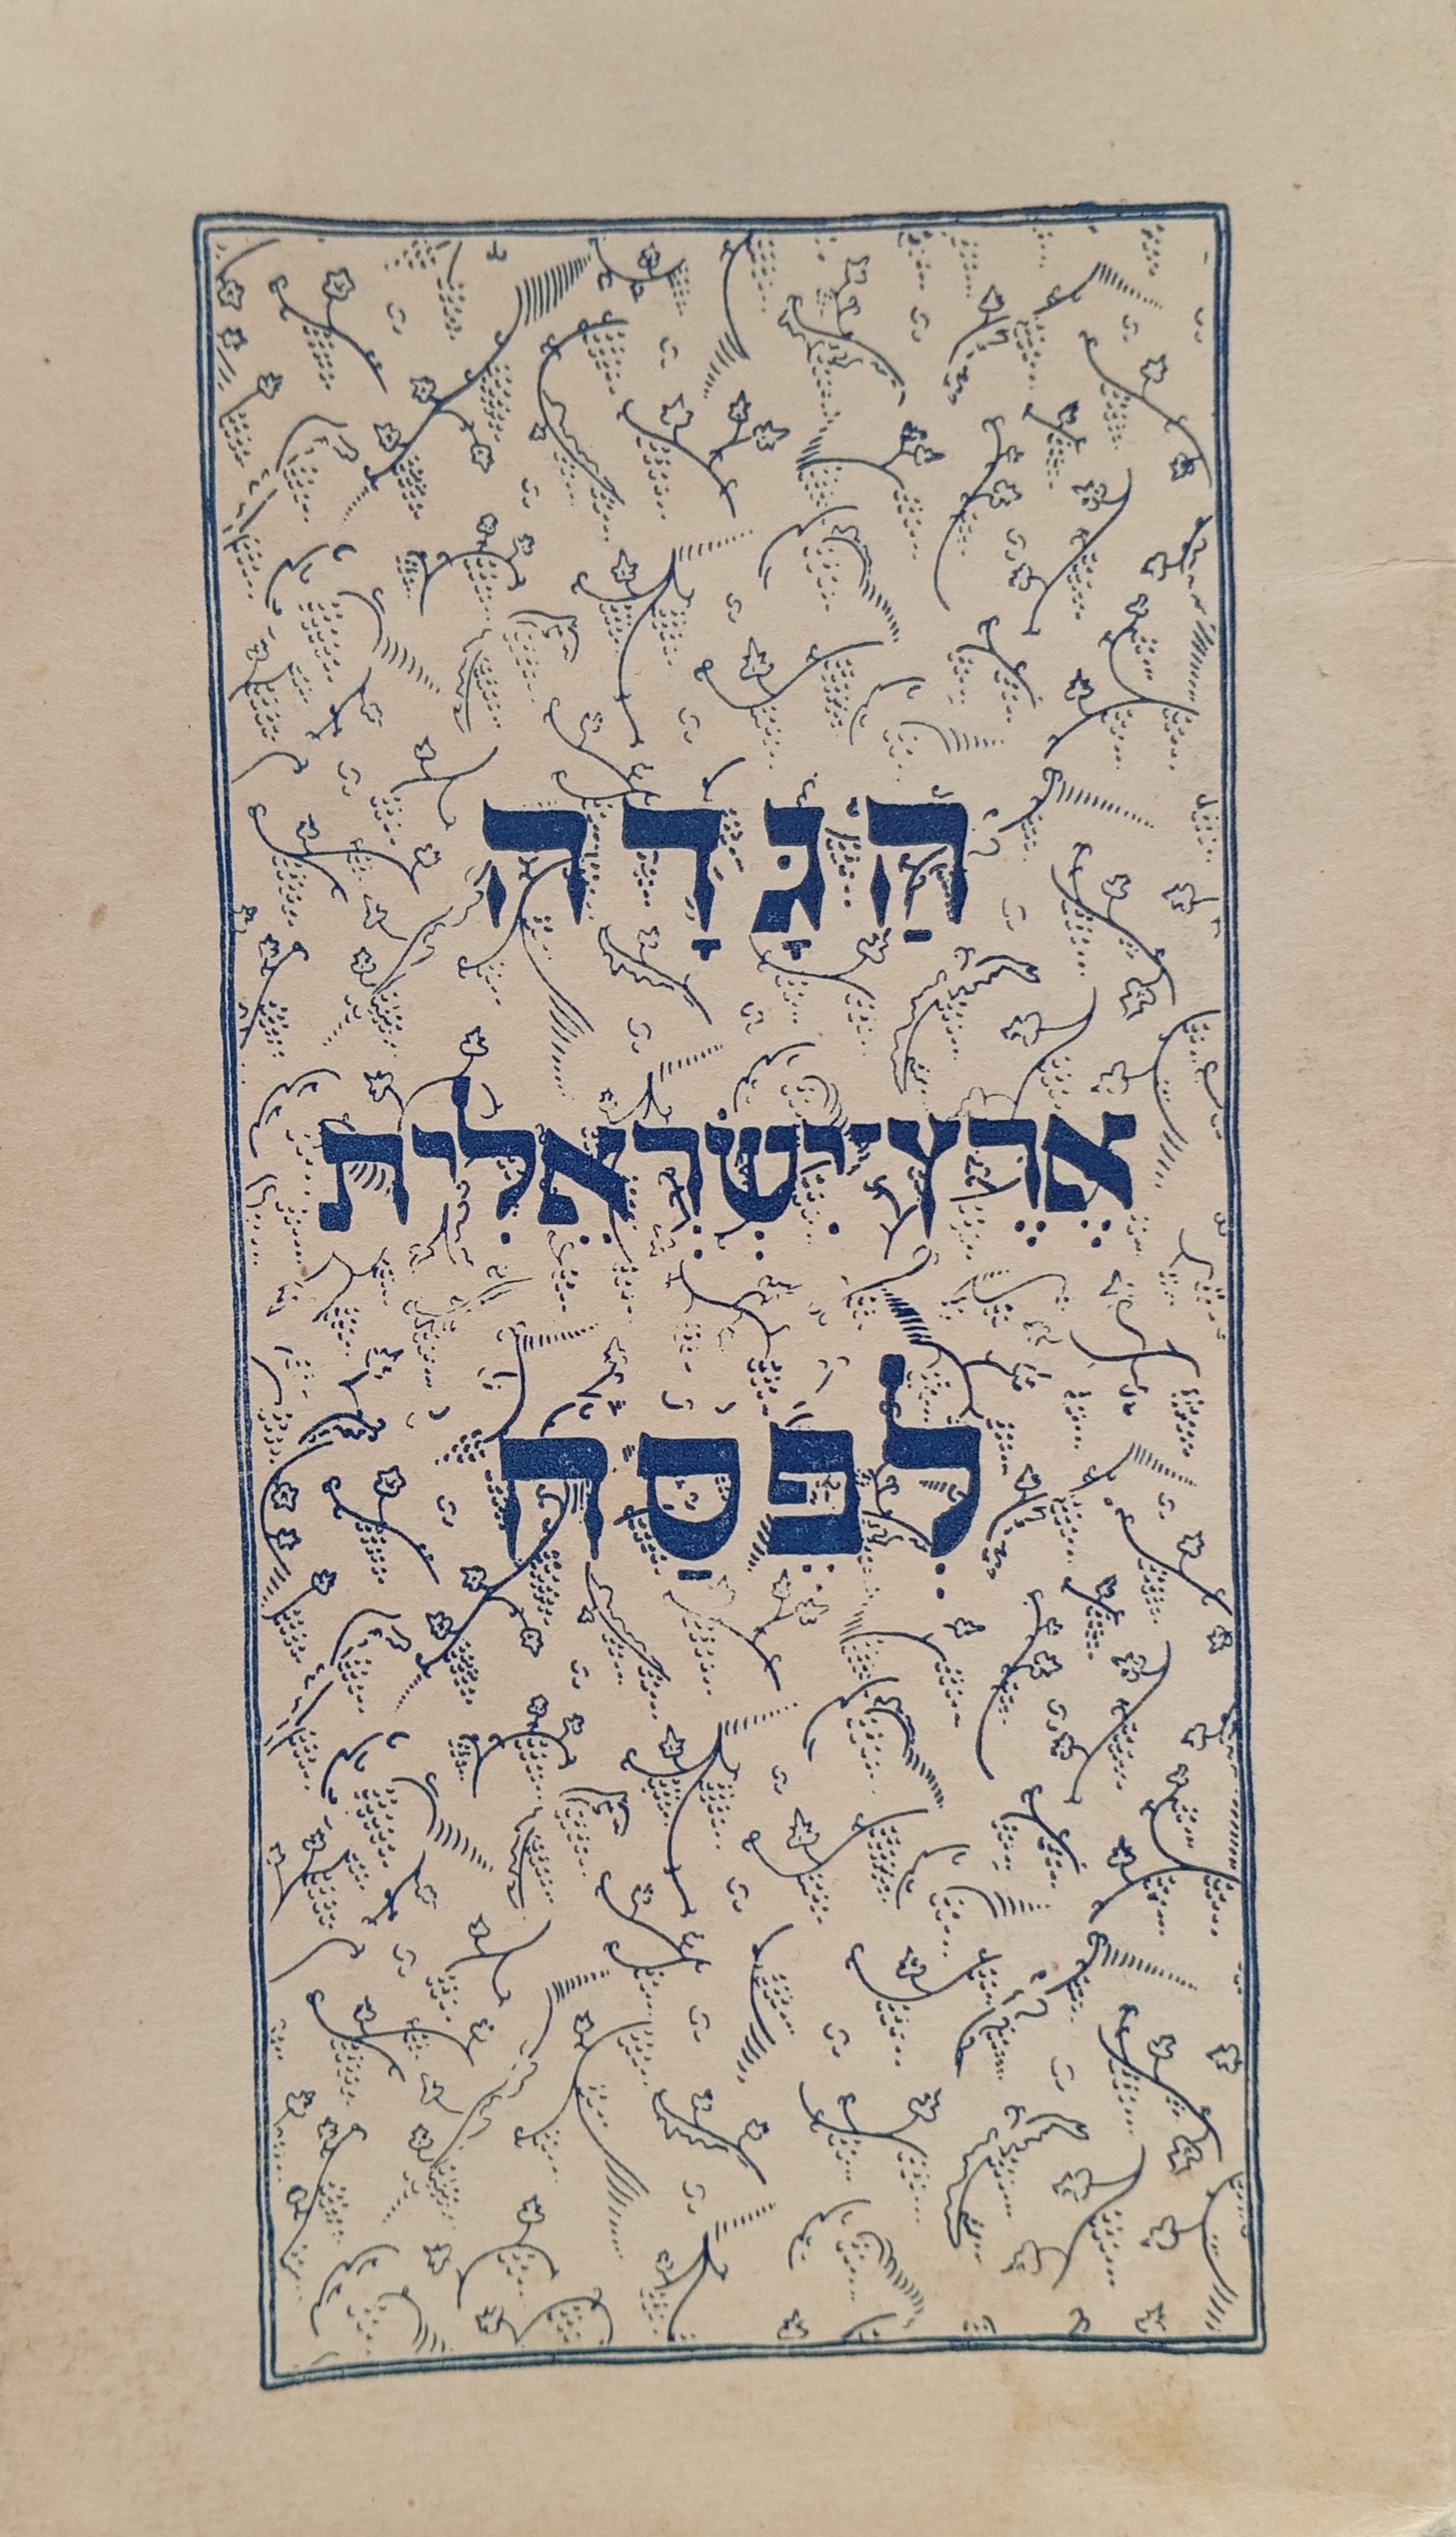 הַגָּדָה
אֶרֶצִיִשְׂרְאֵלִית
לְפֶּסַח